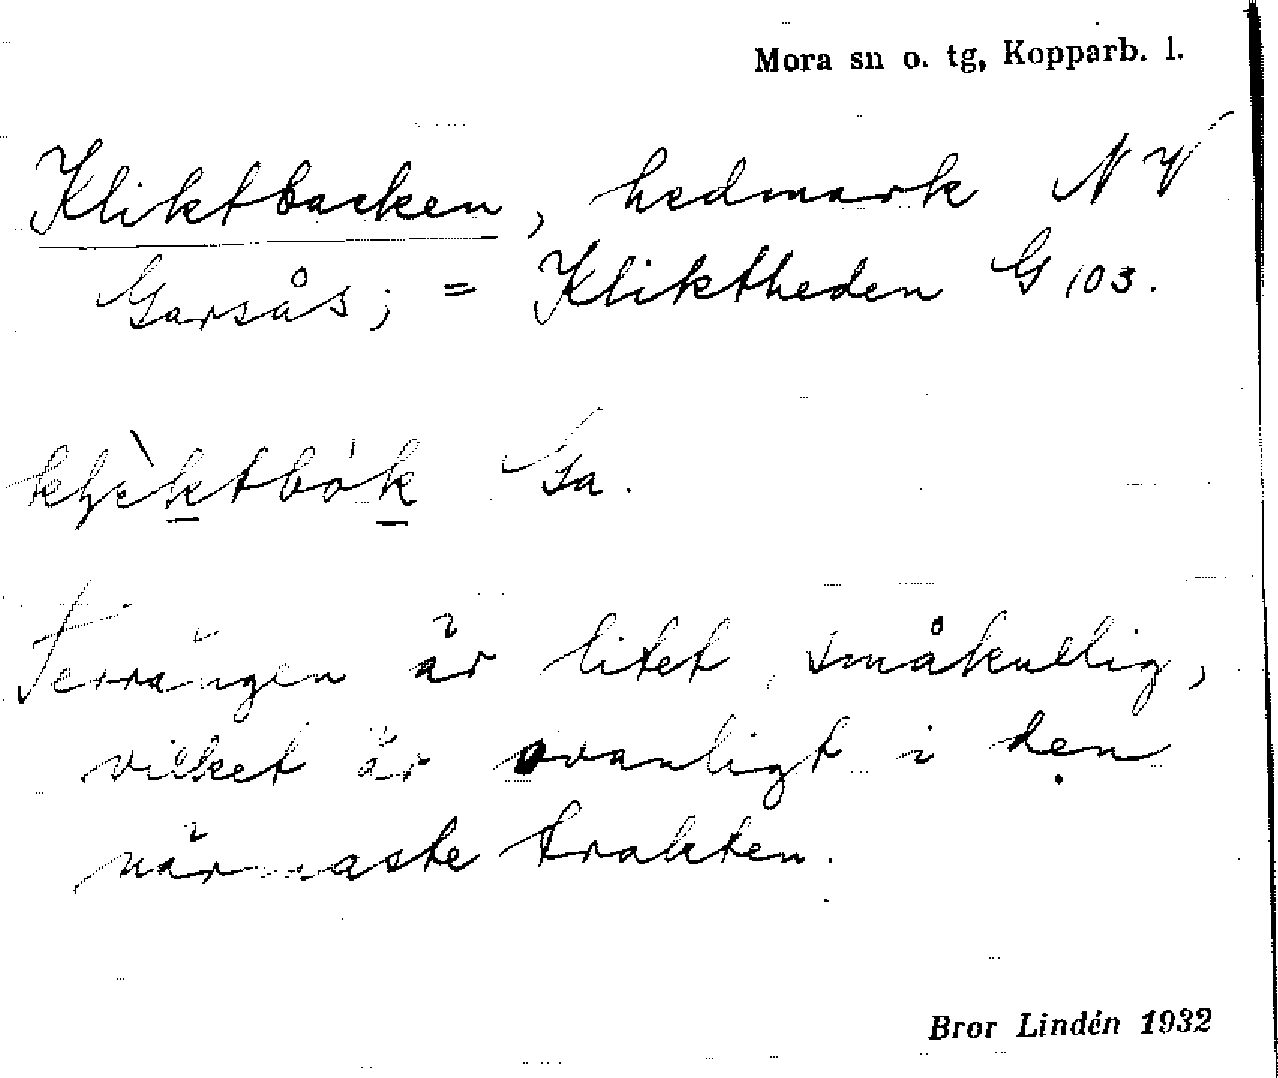 Mora sn o. tg, Kopparb. l.
Kliktbacken, hedmark NV
Garsås; = Kliktheden G 103.
Ga.
Terrängen är litet småkullig,
vilket är ovanligt i den
närmaste trakten.
Bror Lindén 1932